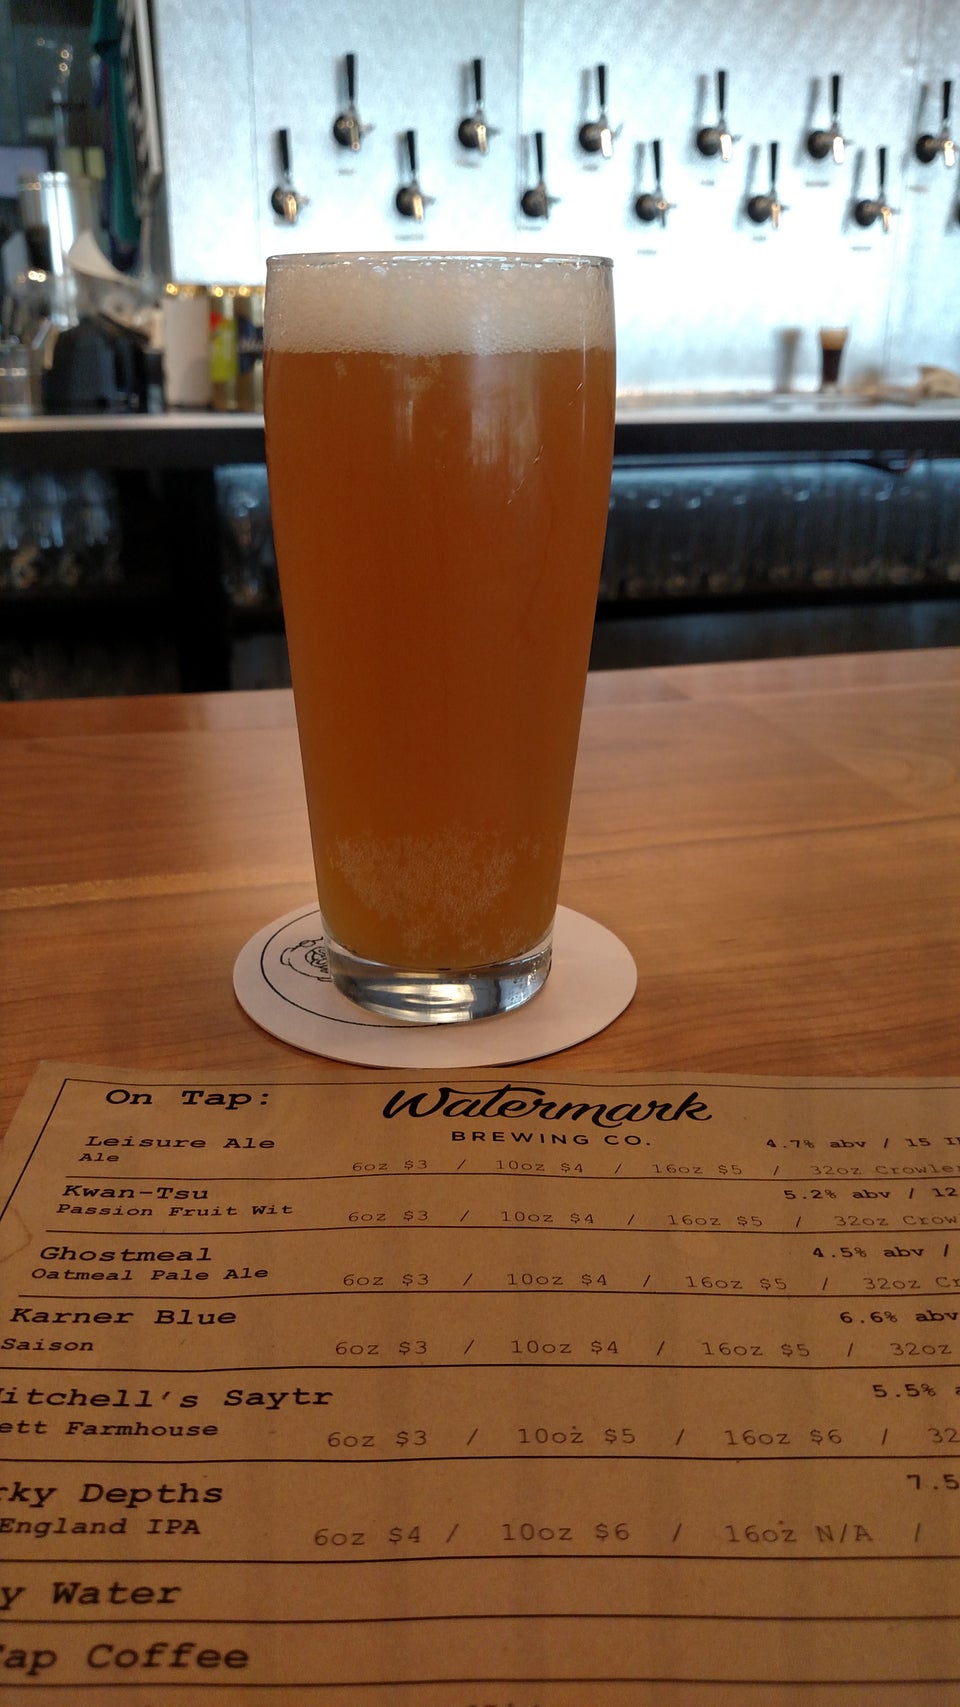 On Tap:
Watermark
BREWING CO.
Leisure Ale 4.7% abv / 15
Ale 6oz $3 / 10oz $4 / 16oz $5 / 32oz Crowle
Kwan-Tsu 5.2% abv / 12
Passion Fruit Wit 6oz $3 / 10oz $4 / 16oz $5 / 32oz Crow
Ghostmeal 4.5% abv /
Oatmeal Pale Ale 6oz $3 / 10oz $4 / 16oz $5 / 32oz Cr
Karner Blue 6.6% abv
Saison 6oz $3 / 10oz $4 / 16oz $5 / 32oz
itchell's Saytr 5.5%
ett Farmhouse 6oz $3 / 10oz $5 / 16oz $6 / 32
rky Depths 7.5
England IPA 6oz $4 / 10oz $6 / 16oz N/A /
y Water
Tap Coffee